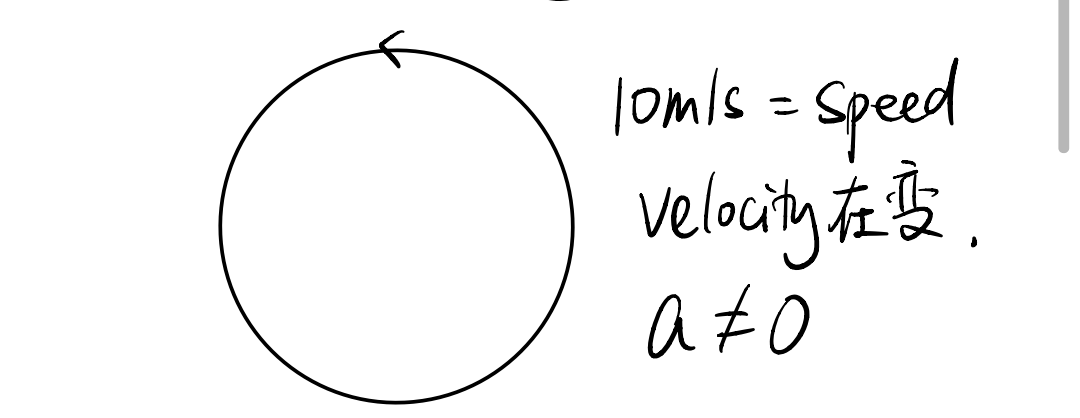 10m/s = speed
velocity在变.
a ≠ 0